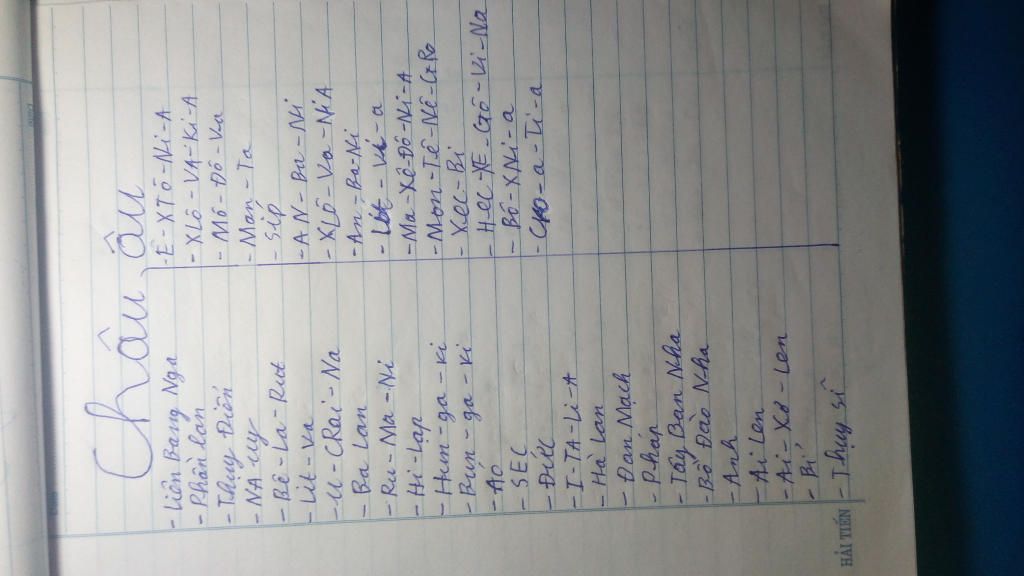 Châu Âu
- Liên Bang Nga
- Phần Lan
- Thụy Điển
- NA uy
- Bê - La - Rut
- Lít - Va
- U - CRai - Na
- Ba Lan
- Ru - Ma - Ni
- Hi - Lạp
- Hum - ga - ki
- Bun - ga - ki
- Áo
- SEC
- Đức
- I - TA - Li - A
- Hà Lan
- Đan Mạch
- Pháp
- Tây Ban Nha
- Bồ Đào Nha
- Anh
- Ai Len
- Ai - Xơ - Len
- Bỉ
- Thụy Sĩ
- Ê - XTÔ - Ni - A
- XLÔ - VA - Ki - A
- Mô - Đô - Va
- Man - Ta
- Síp
- AN - Ba - Ni
- XLÔ - Va - NiA
- An - Ba - Ni
- Lát - Vi - a
- Ma - Xê - Đô - Ni - A
- Mon - Tê - Nê - GRo
- Xec - Bi
- Hec - XE - GÔ - Vi - Na
- Bô - XNi - a
- CRo - a - Ti - a
HẢI TIẾN